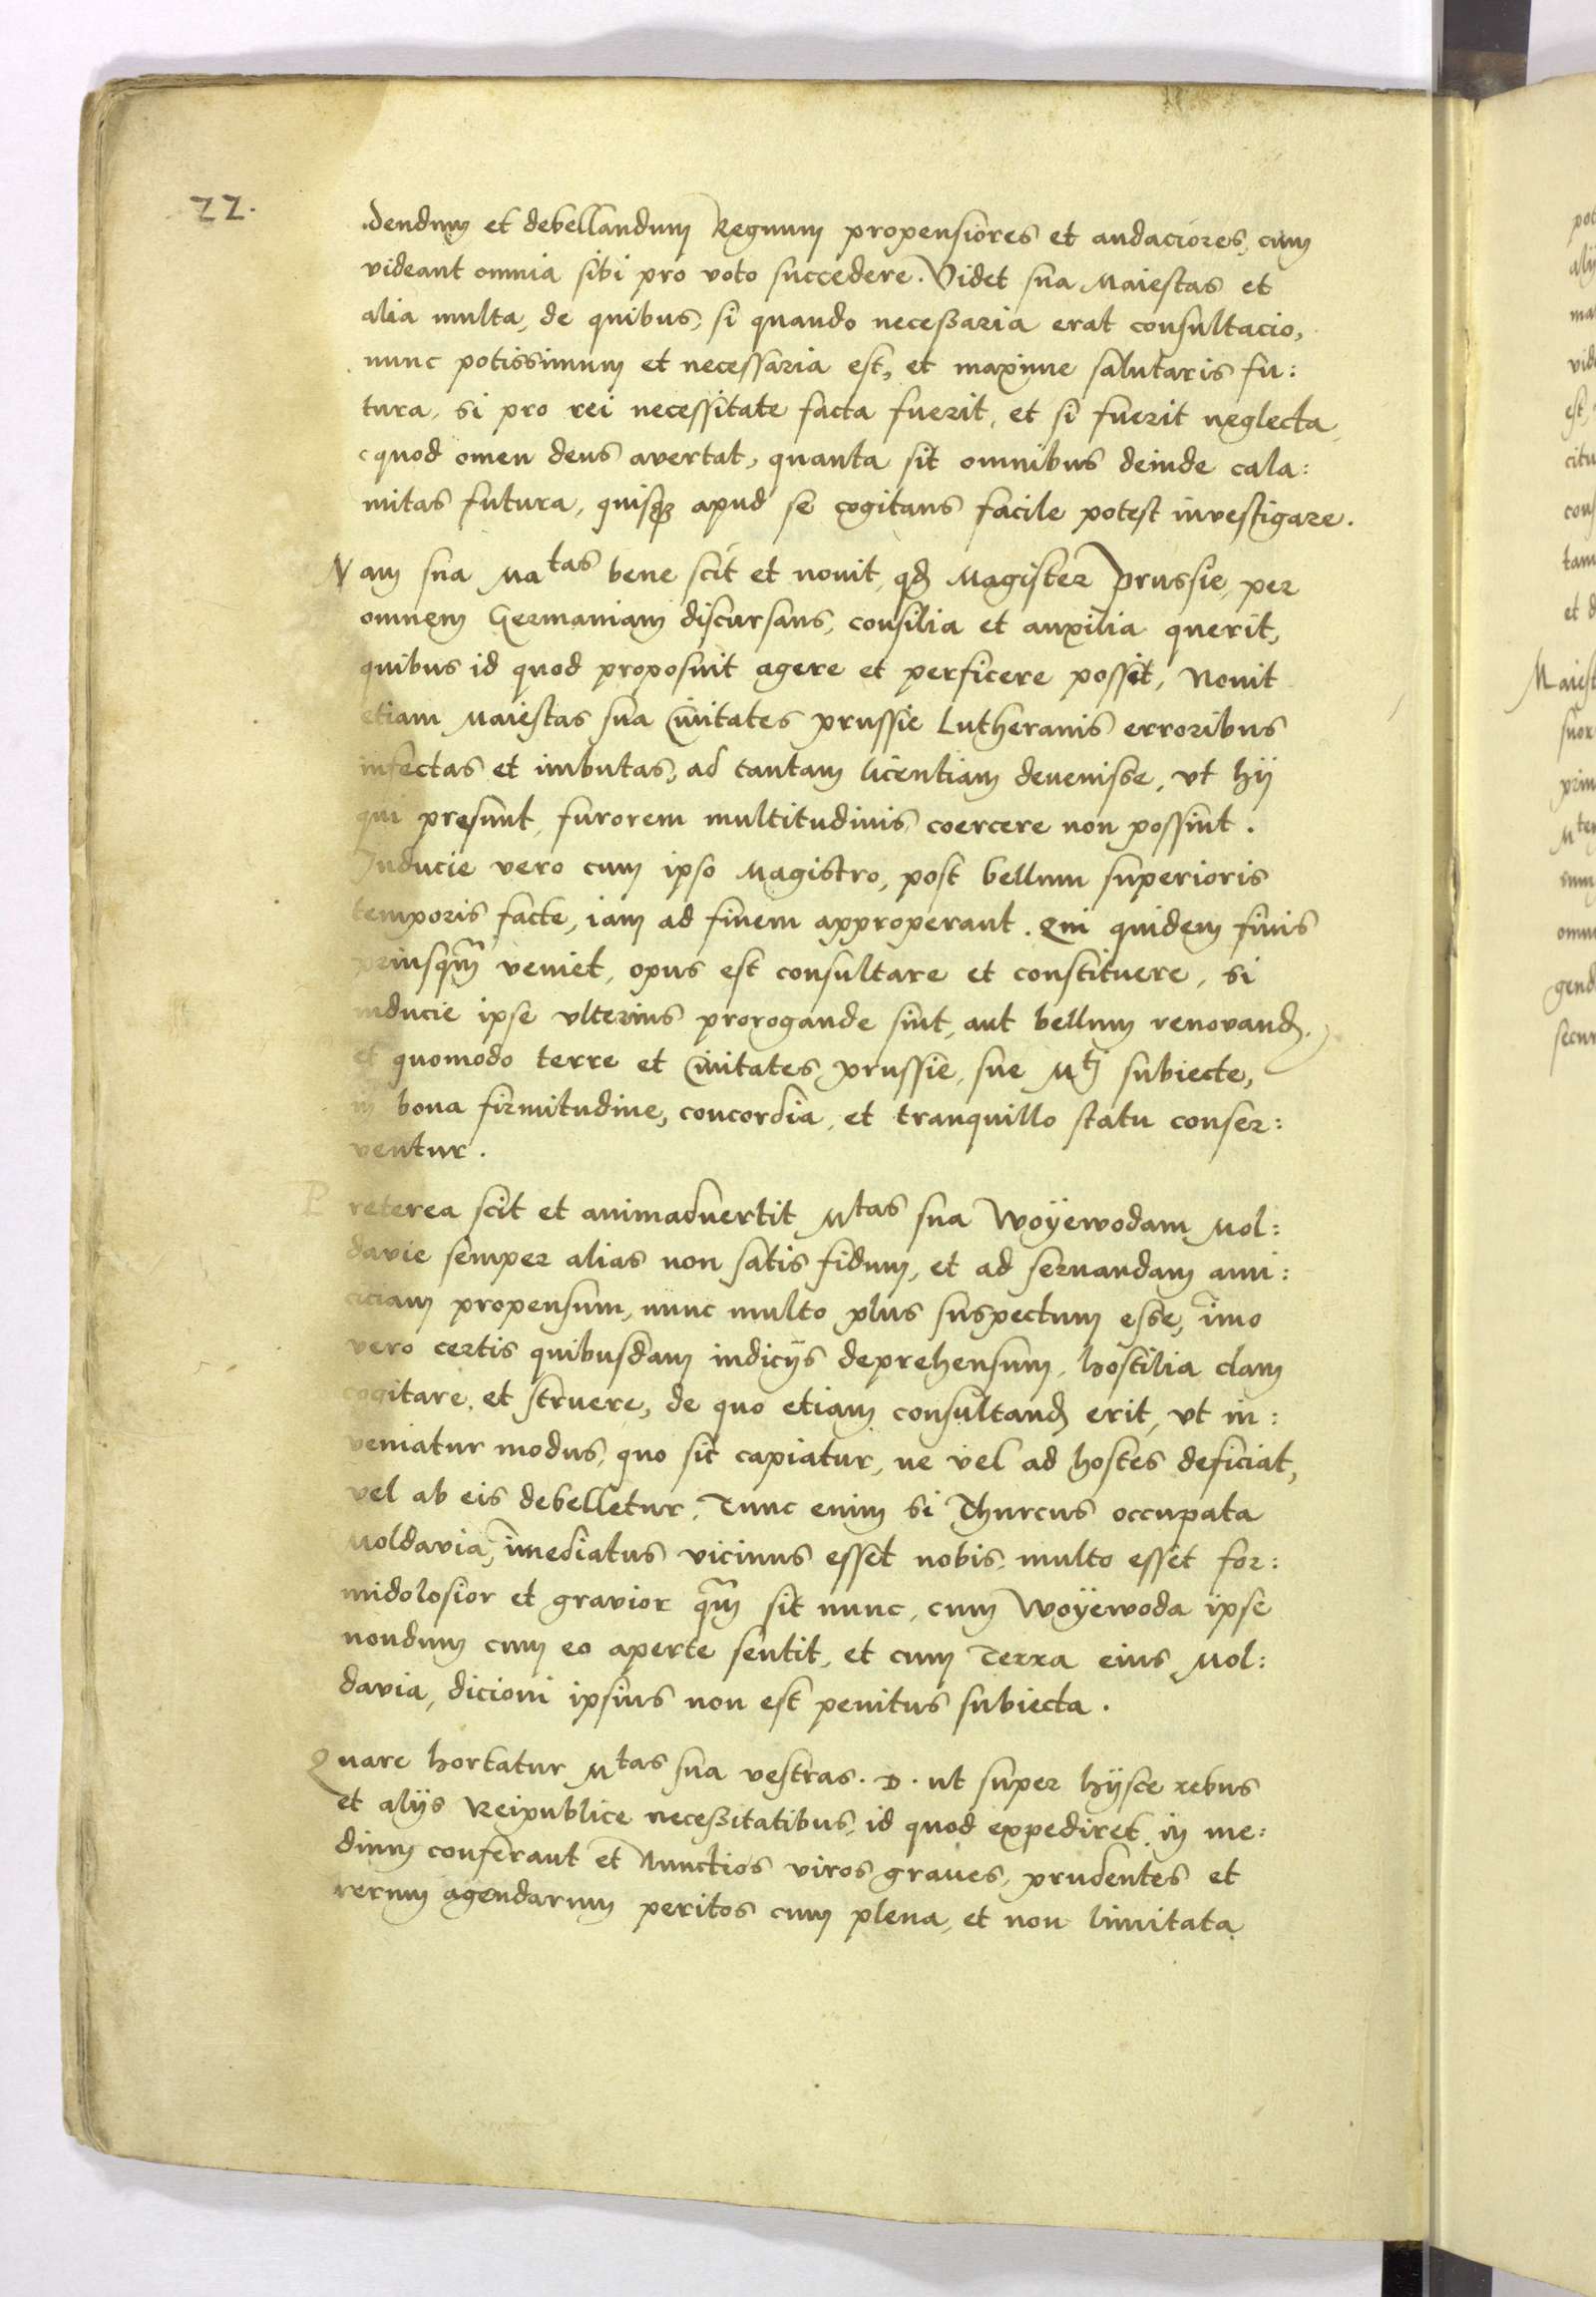 22.
dendum et debellandum Regnum propensiores et audaciores, cum
videant omnia sibi pro voto succedere. Videt sua Maiestas et
alia multa, de quibus, si quando neceßaria erat consultacio,
nunc potissimum et necessaria est, et maxime salutaris fu:
tura, si pro rei necessitate facta fuerit, et si fuerit neglecta,
(quod omen deus avertat, quanta sit omnibus deinde cala:
mitas futura, quisqꝫ apud se cogitans facile potest investigare.
Nam sua Matas bene scit et novit, qđ Magister Prussie, per
omnem Germaniam discursans, consilia et auxilia querit,
quibus id quod proposuit agere et perficere possit, Novit
etiam Maiestas sua Civitates prussie Lutheranis erroribus
infectas et imbutas, ad tantam licentiam devenisse, vt hij
qui presunt, furorem multitudinis coercere non possint.
Inducie vero cum ipso Magistro, post bellum superioris
temporis facte, iam ad finem approperant. Qui quidem finis
priusqm̄ veniet, opus est consultare et constituere, si
inducie ipse vlterius prorogande sint, aut bellum renovand.
et quomodo terre et Civitates prussie, sue Mtj subiecte,
in bona firmitudine, concordia, et tranquillo statu conser:
ventur.
Preterea scit et animadvertit Mtas sua Woÿewodam Mol:
davie semper alias non satis fidum, et ad servandam ami:
ciciam propensum, nunc multo plus suspectum esse, īmo
vero certis quibusdam indicijs deprehensum, hostilia clam
cogitare, et struere, de quo etiam consultand erit, vt in:
veniatur modus, quo sit capiatur, ne vel ad hostes deficiat,
vel ab eis debelletur. Tunc enim si Thurcus occupata
Moldavia, īmediatus vicinus esset nobis, multo esset for:
midolosior et gravior qm̄ sit nunc, cum Woÿewoda ipse
nondum cum eo aperte sentit, et cum Terra eius Mol:
davia, dicioni ipsius non est penitus subiecta.
Quare hortatur Mtas sua vestras. D. ut super hijsce rebus
et alijs Reipublice neceßitatibus, id quod expediret, in me:
dium conferant et Nunctios viros graves, prudentes et
rerum agendarum peritos cum plena, et non limitata